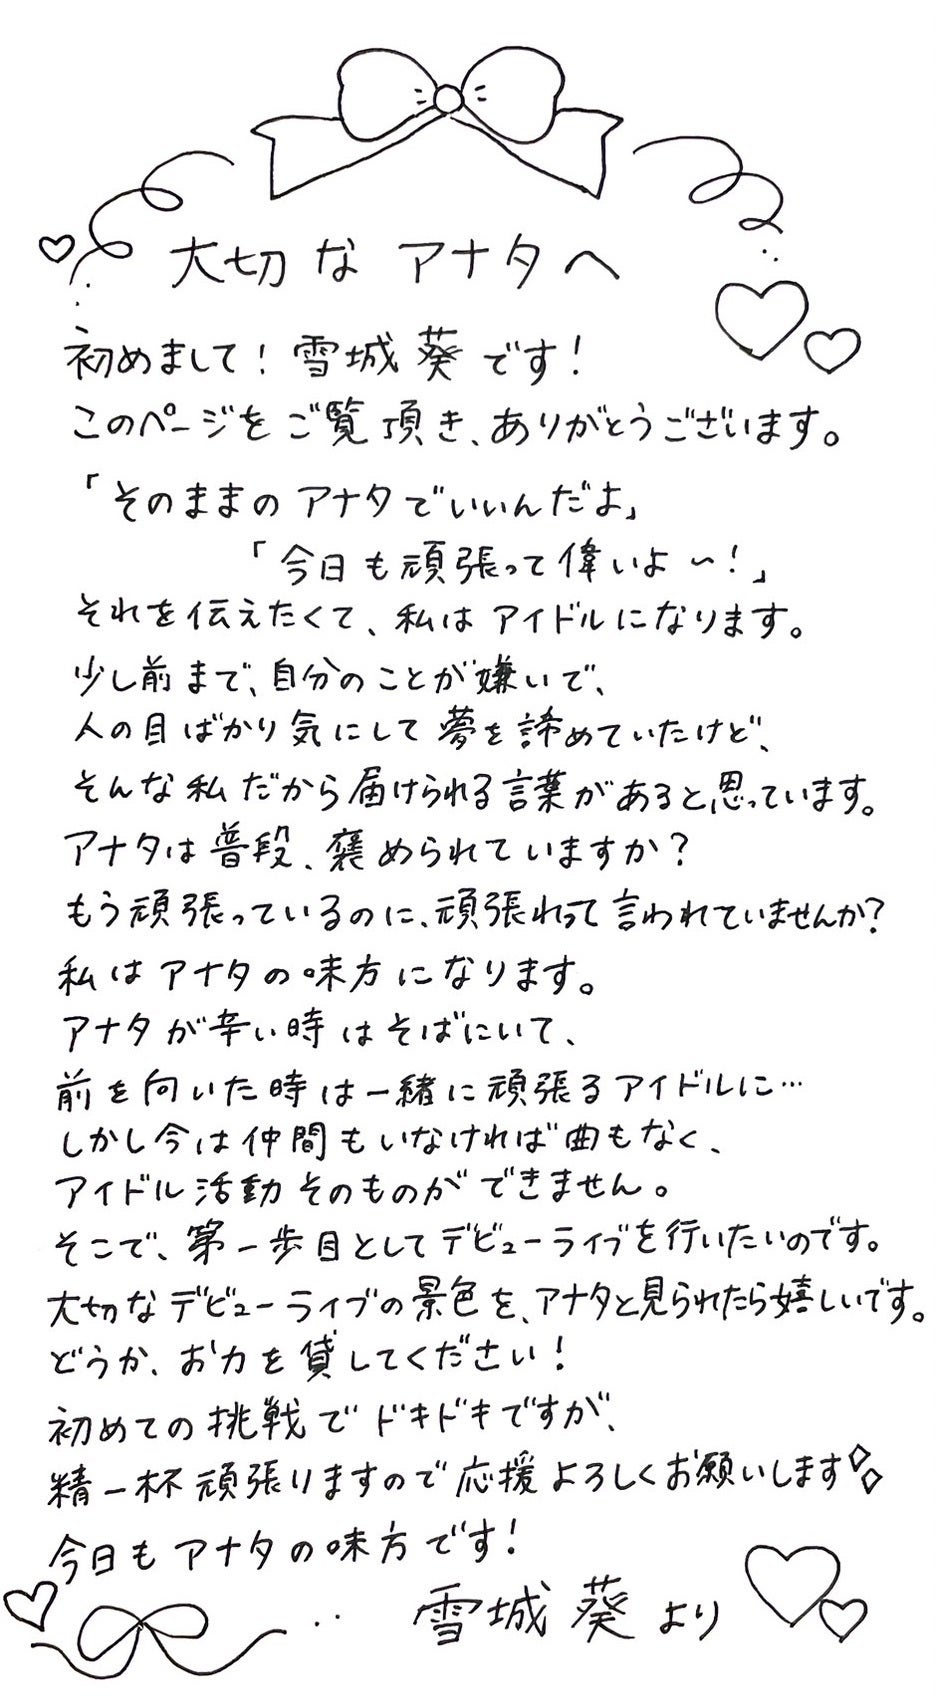 大切なアナタへ
初めまして！雪城葵です！
このページをご覧頂き、ありがとうございます。
「そのままのアナタでいいんだよ」
「今日も頑張って偉いよ～！」
それを伝えたくて、私はアイドルになります。
少し前まで、自分のことが嫌いで、
人の目ばかり気にして夢を諦めていたけど、
そんな私だから届けられる言葉があると、思っています。
アナタは普段、褒められていますか？
もう頑張っているのに、頑張れって言われていませんか？
私はアナタの味方になります。
アナタが辛い時はそばにいて、
前を向いた時は一緒に頑張るアイドルに…
しかし今は仲間もいなければ曲もなく、
アイドル活動そのものができません。
そこで、第一歩目としてデビューライブを行いたいのです。
大切なデビューライブの景色を、アナタと見られたら嬉しいです。
どうか、お力を貸してください！
初めての挑戦でドキドキですが、
精一杯頑張りますので応援よろしくお願いします
今日もアナタの味方です！
雪城葵より